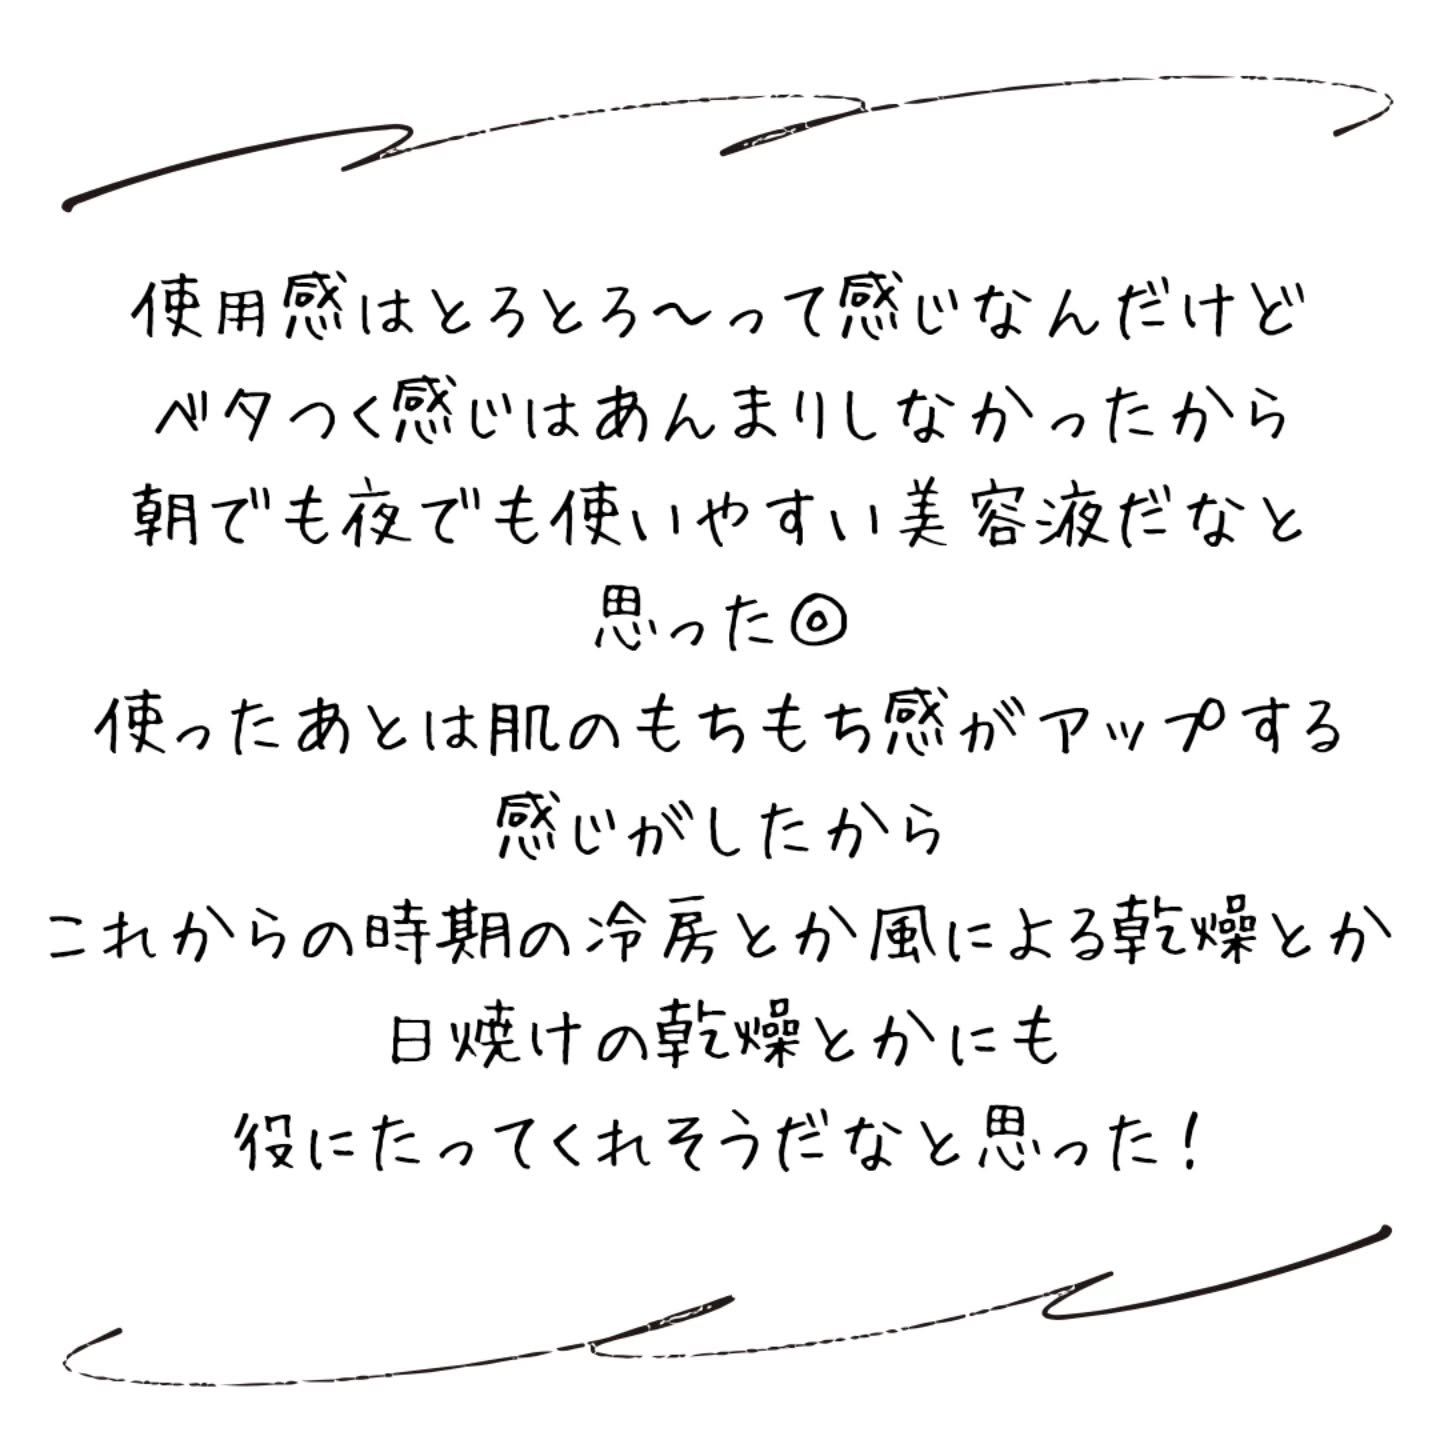 使用感はとろとろ〜って感じなんだけど
ベタつく感じはあんまりしなかったから
朝でも夜でも使いやすい美容液だなと
思った◎
使ったあとは肌のもちもち感がアップする
感じがしたから
これからの時期の冷房とか風による乾燥とか
日焼けの乾燥とかにも
役にたってくれそうだなと思った！